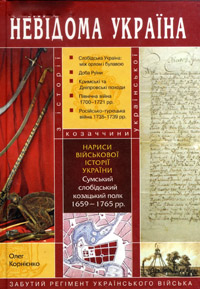 НЕВІДОМА УКРАЇНА
з історії
української
козаччини
Слобідська Україна:
між орлом і булавою
Доба Руїни
Кримські та
Дніпровські походи
Північна війна
1700–1721 рр.
Російсько-турецька
війна 1735–1739 рр.
НАРИСИ
ВІЙСЬКОВОЇ
ІСТОРІЇ
УКРАЇНИ
Сумський
слобідський
козацький полк
1659–1765 рр.
Олег
Корнієнко
ЗАБУТИЙ РЕГІМЕНТ УКРАЇНСЬКОГО ВІЙСЬКА